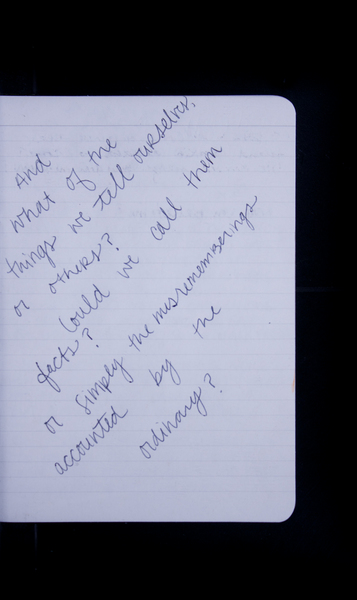 And
what of the
things we tell ourselves,
or others?
Could we call them
facts?
or simply the misrememberings
accounted by the
ordinary?